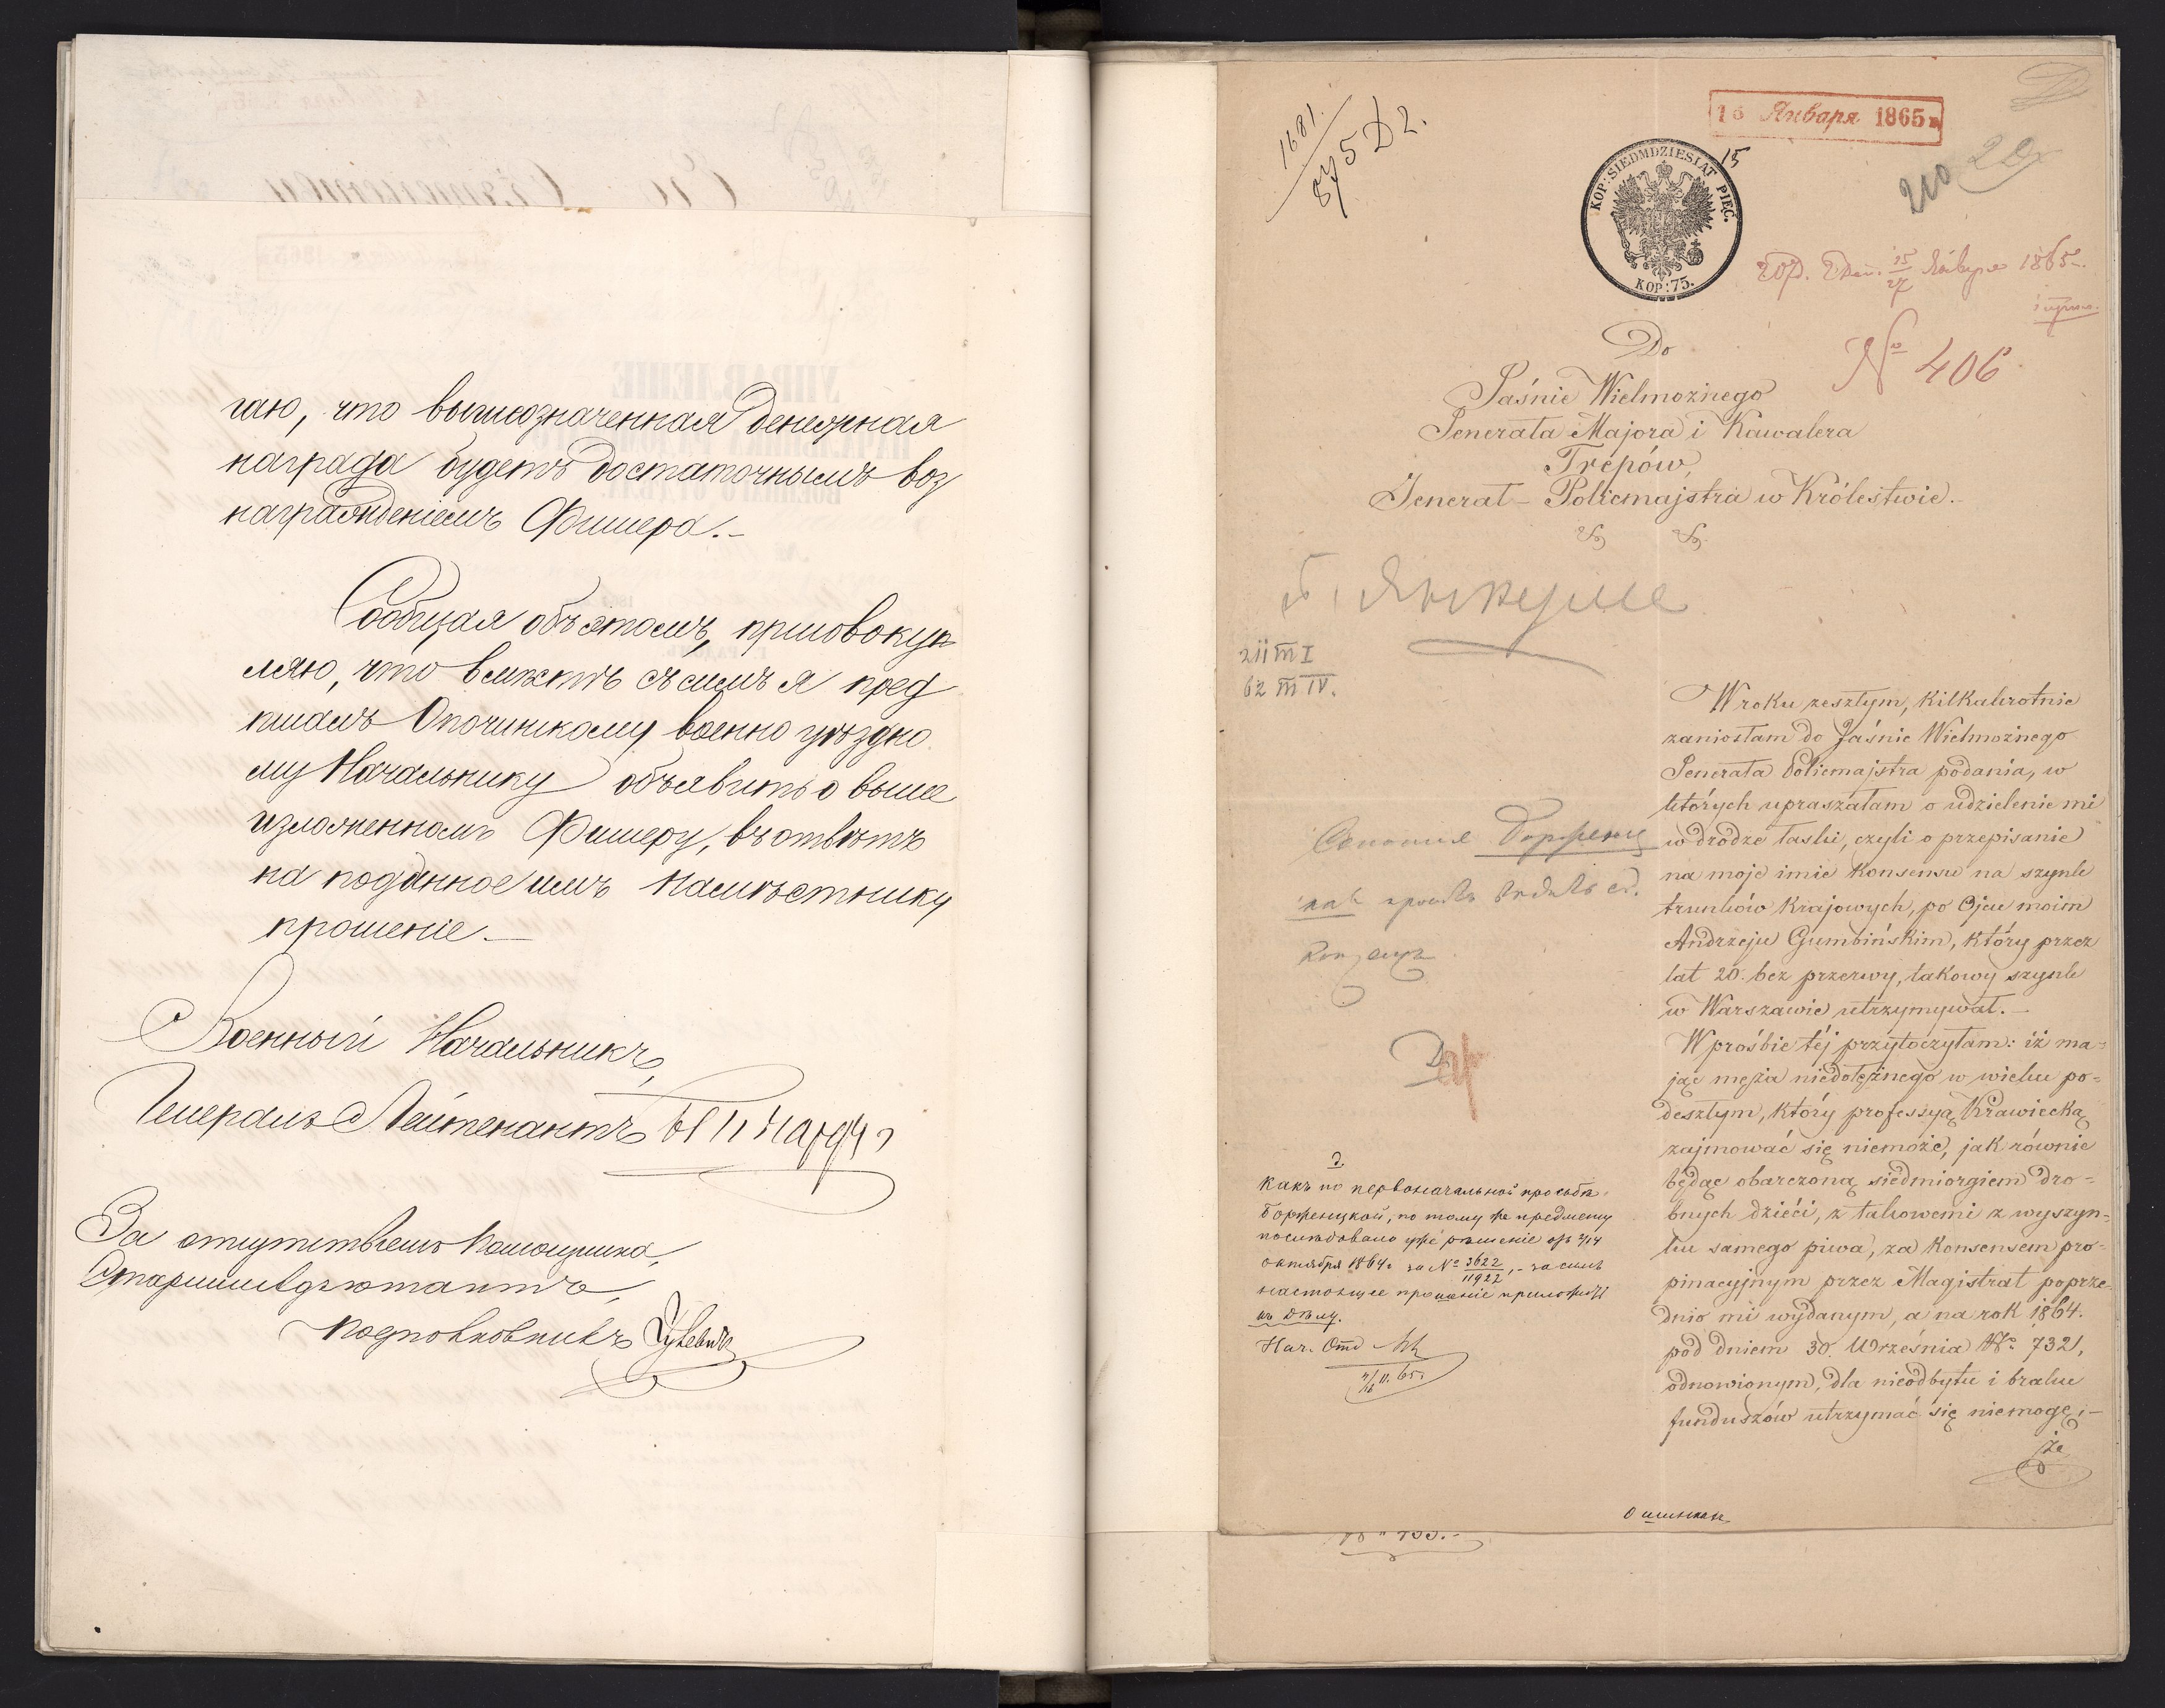 гаю, что вышеозначенная денежная
награда будетъ достаточнымъ воз
награжденіемъ Фишера.-
Сообщая объ этомъ, присовокуп
ляю, что вмѣстѣ съ симъ я пред
писалъ Опочинскому военно уѣздно
му Начальнику объявить о выше
изложенномъ Фишеру, въ отвѣтъ
на поданное имъ Намѣстнику
прошеніе.-
Военный Начальникъ,
Генералъ Лейтенантъ
За отсутствіемъ Помощника,
Старшій Адъютантъ,
Подполковникъ
1681.
875 Д2.
Января 1865
KOP: SIEDMDZIESIAT PIĘC.
KOP: 75.
15
20
15/27 Января 1865
№ 406
Do
Jaśnie Wielmożnego
Jenerała Majora i Kawalera
Trepów,
Jenerał-Policmajstra w Królestwie.-
211 m I
62 m IV.
W roku zeszłym, kilkakrotnie
zaniosłam do Jaśnie Wielmożnego
Jenerała Policmajstra podania, w
których upraszałam o udzielenie mi
w drodze łaski, czyli o przepisanie
na moje imie Konsensu na szynk
trunków Krajowych, po Ojcu moim
Andrzeju Gumbińskim, który przez
lat 20. bez przerwy, takowy szynk
w Warszawie utrzymywał.-
W prośbie téj przytoczyłam: iż ma=
jąc męża niedołężnego w wieku po=
deszłym, który professyą Krawiecką
zajmować się niemoże, jak równie
będąc obarczoną siedmiorgiem dro=
bnych dzieći, z takowemi z wyszyn=
ku samego piwa, za Konsensem pro=
pinacyjnym przez Magistrat poprze=
dnio mi wydanym, a na rok 1864.
pod dniem 30. Września № 7321,
odnowionym, dla nieodbytu i braku
funduszów utrzymać się niemogę;-
że
Какъ по первоначальной просьбѣ
Борженцкой, по тому же предмету
послѣдовало уже рѣшеніе отъ 2/14
октября 1864 за № 3622/11922,- за симъ
настоящее прошеніе приложить
къ дѣлу.
Нач. Отд